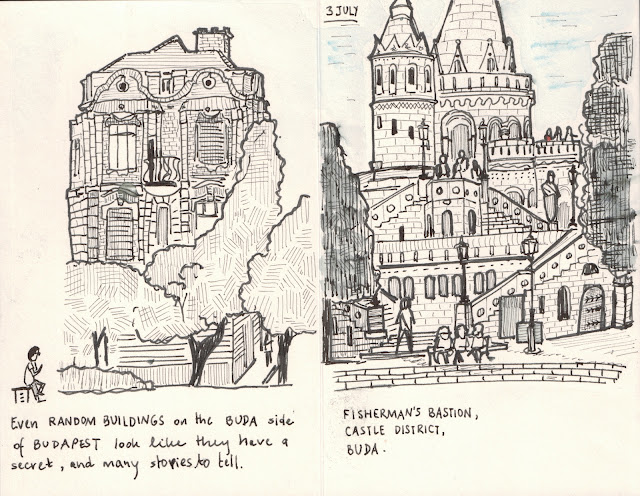 Even RANDOM BUILDINGS on the BUDA side
of BUDAPEST look like they have a
secret, and many stories to tell.
3 JULY
FISHERMAN'S BASTION,
CASTLE DISTRICT,
BUDA.